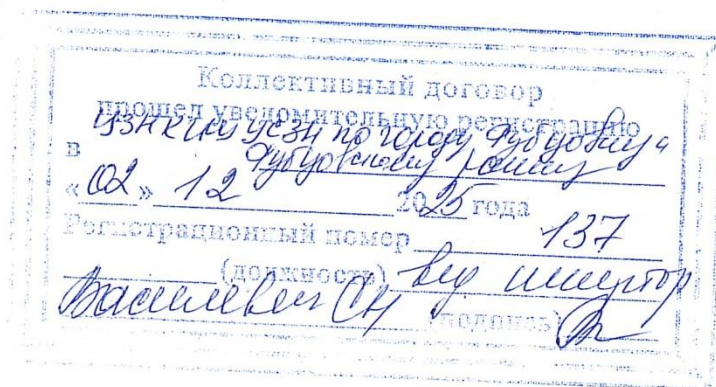 Коллективный договор
прошел уведомительную регистрацию
УСЗН по городу Рубцовску и
в Рубцовскому району
«02» 12 2025 года
Регистрационный номер 137
(должность) вед инспектор
Василевич СН (подпись)